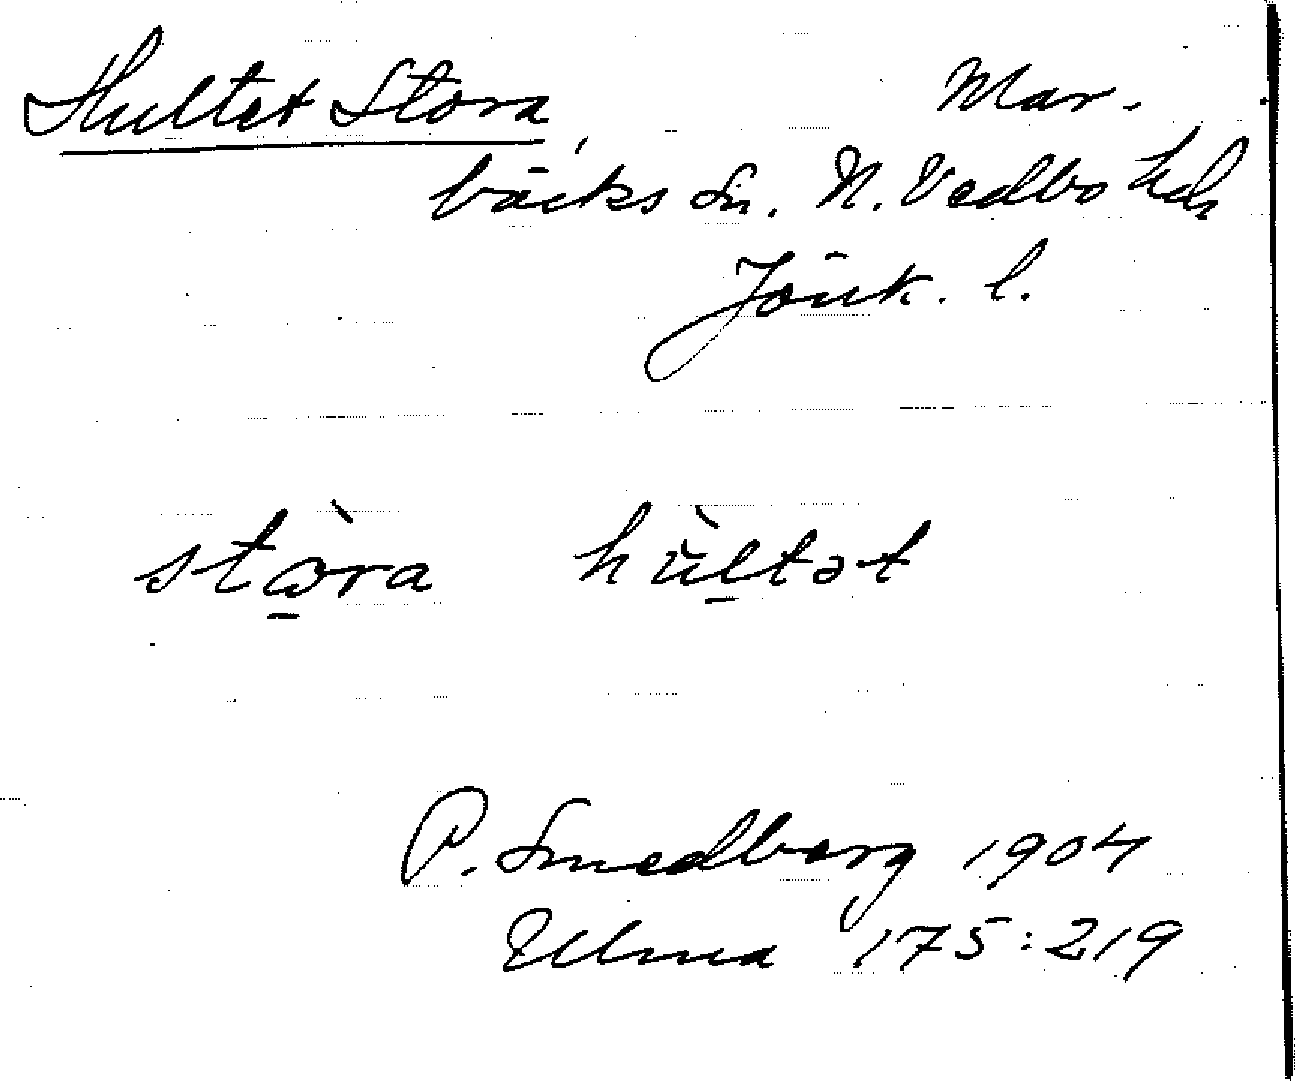 Hultet Stora, Mar-
bäcks sn. N. Vedbo hd
Jönk. l.
stὼ̱ra hùḻtət
P. Smedberg 1904
Ulma 175:219